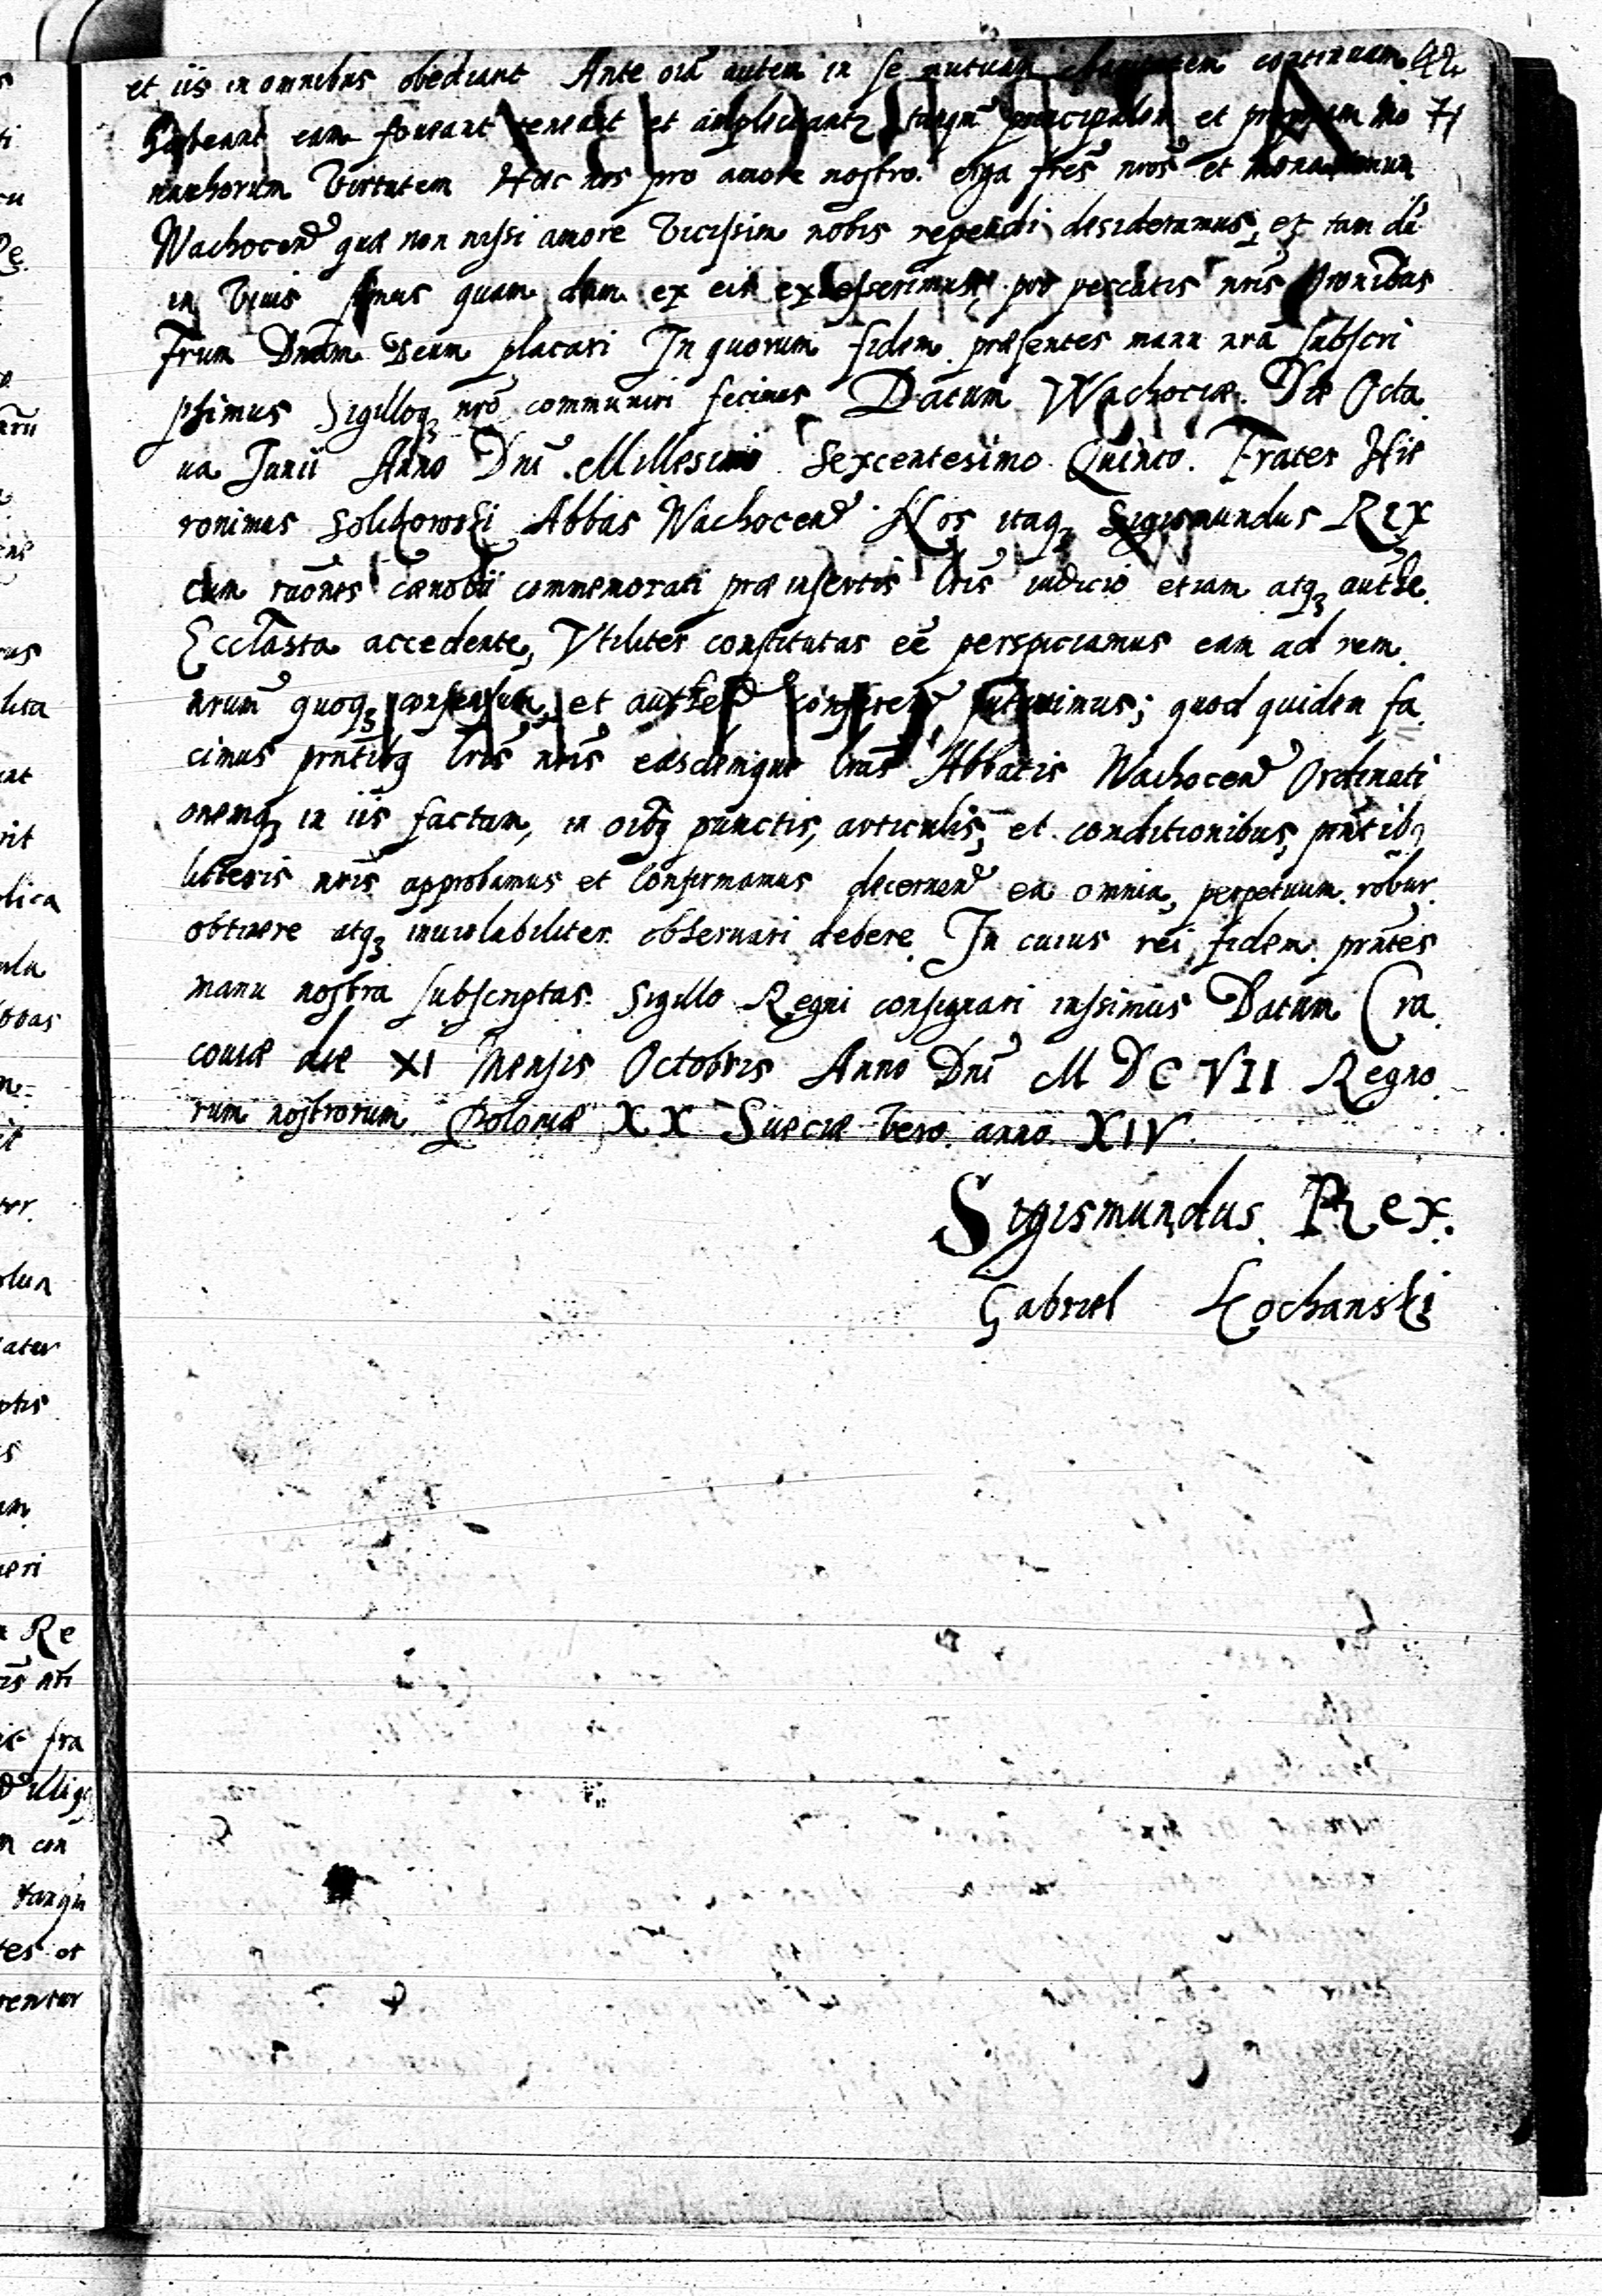 et iis in omnibus obediant Ante oīa autem in se mutuam charitatem continuam 42
habeant eam foveant teneant et amplectantr tanqm̄ principalem et propriam mo 71
nachorum virtutem Hac nos pro amore nostro erga frēs nrōs et monasterium
Wachocen̄ quæ non nisi amore vicissim nobis rependi desideramus, et tam dū
in vivis simus quam dum ex eis excesserimus, pro peccatis nrīs
Frum Dnūm Deum placari In quorum fidem præsentes manu nrā subscri
psimus Sigilloq3 nrō communiri fecimus Datum Wachociæ Die Octa
va Junii Anno Dnī Millesimo Sexcentesimo Quinto. Frater Hie
ronimus Solikowski Abbas Wachocen̄ Nos itaq3 Sigismundus Rex
cum raōnes cænobii commemorati præinsertis lrīs iudicio etiam atq3 authe
Ecclāsta accedente, Vtiliter constitutas eē perspiciamus eam ad rem
nrum̄ quoq3 consensum, et authen̄ conferen̄ putavimus; quod quidem fa
cimus prn̄tibq lrīs nrīs easdemque lrās Abbatis Wachocen̄ Ordinati
onemq3 in iis factam, in oībq punctis, articulis, et conditionibus, prn̄tibq
litteris nrīs approbamus et confirmamus decernen̄ ea omnia, perpetuum robur
obtinere atq3 inviolabiliter observari debere. In cuius rei fidem prn̄tes
manu nostra subscriptas Sigillo Regni consignari iussimus Datum Cra
coviæ die XI Mensis Octobris Anno Dnī M DC VII Regno
rum nostrorum Poloniæ XX Sueciæ vero anno XIV
Sigismundus Rex.
Gabriel Kochanski